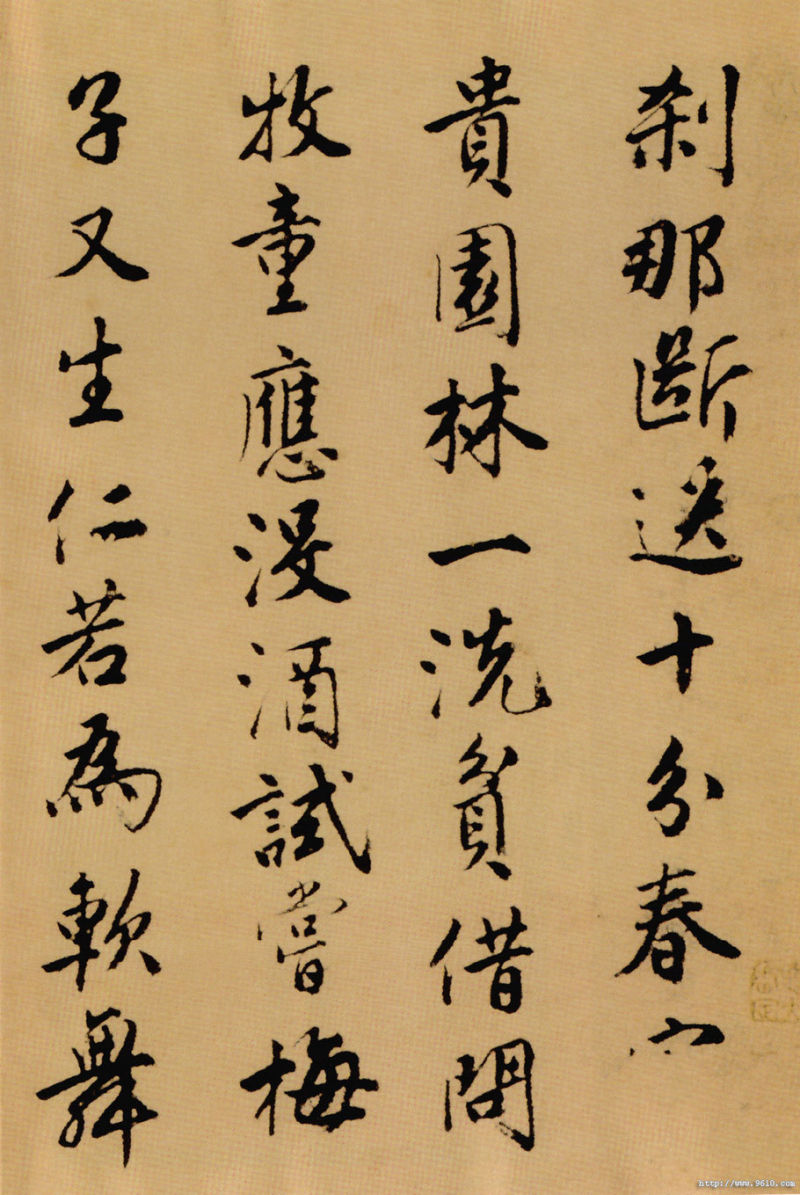 刹那斷送十分春
貴園林一洗貧借問
牧童應没酒試嘗梅
子又生仁若為軟舞
http://www.9610.com